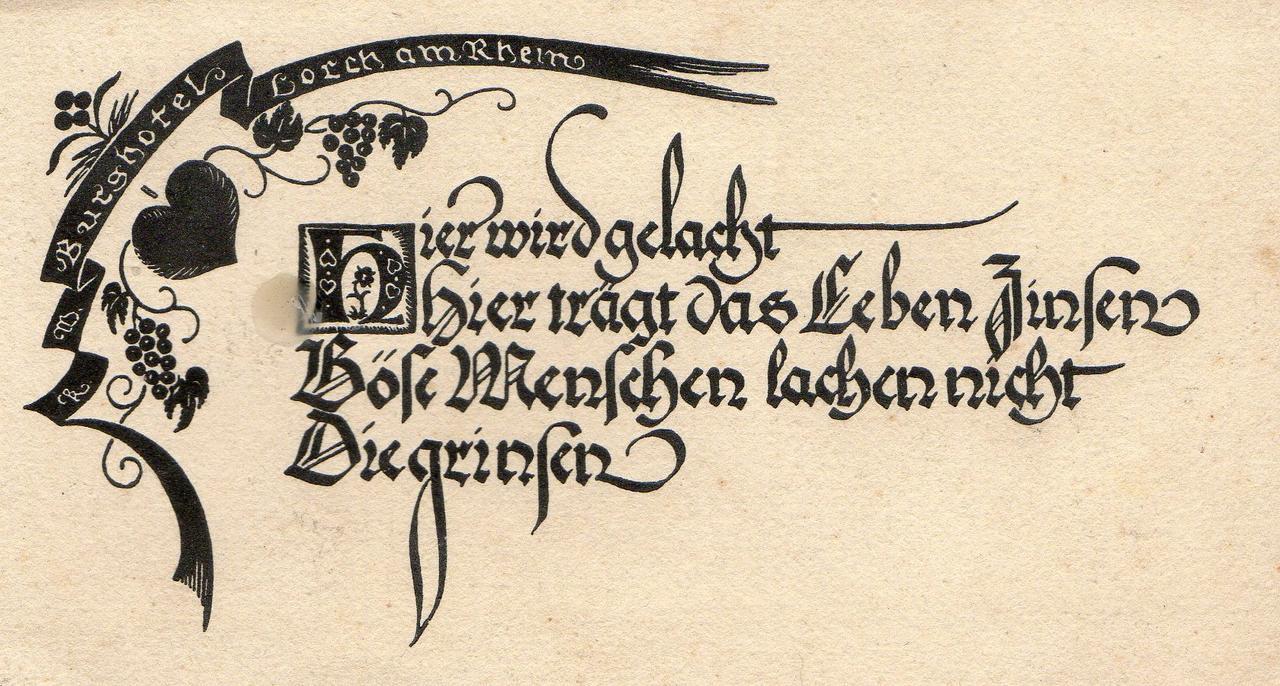 R. W. Burghotel Lorch am Rhein
Hier wird gelacht
hier trägt das Leben Zinsen
Böse Menschen lachen nicht
Die grinsen